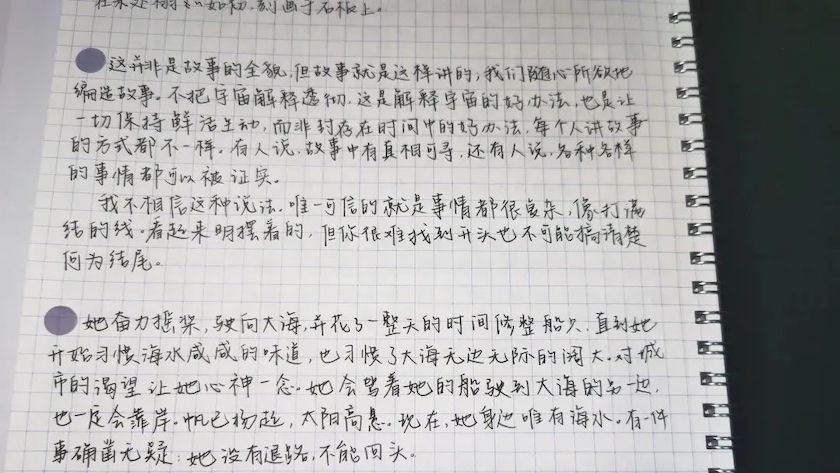 在某处栩栩如初,刻画于石板上。
这并非是故事的全貌,但故事就是这样讲的,我们随心所欲地
编造故事。不把宇宙解释透彻,这是解释宇宙的好办法,也是让
一切保持鲜活生动,而非封存在时间中的好办法,每个人讲故事
的方式都不一样。有人说,故事中有真相可寻,还有人说,各种各样
的事情都可以被证实。
我不相信这种说法。唯一可信的就是事情都很复杂,像打满
结的线。看起来明摆着的,但你很难找到开头也不可能搞清楚
何为结尾。
她奋力摇桨,驶向大海,并花了一整天的时间修整船只,直到她
开始习惯海水咸咸的味道,也习惯了大海无边无际的阔大。对城
市的渴望让她心神一念。她会驾着她的船驶到大海的另一边,
也一定会靠岸。帆已扬起,太阳高悬。现在,她身边唯有海水。有一件
事确凿无疑:她没有退路,不能回头。